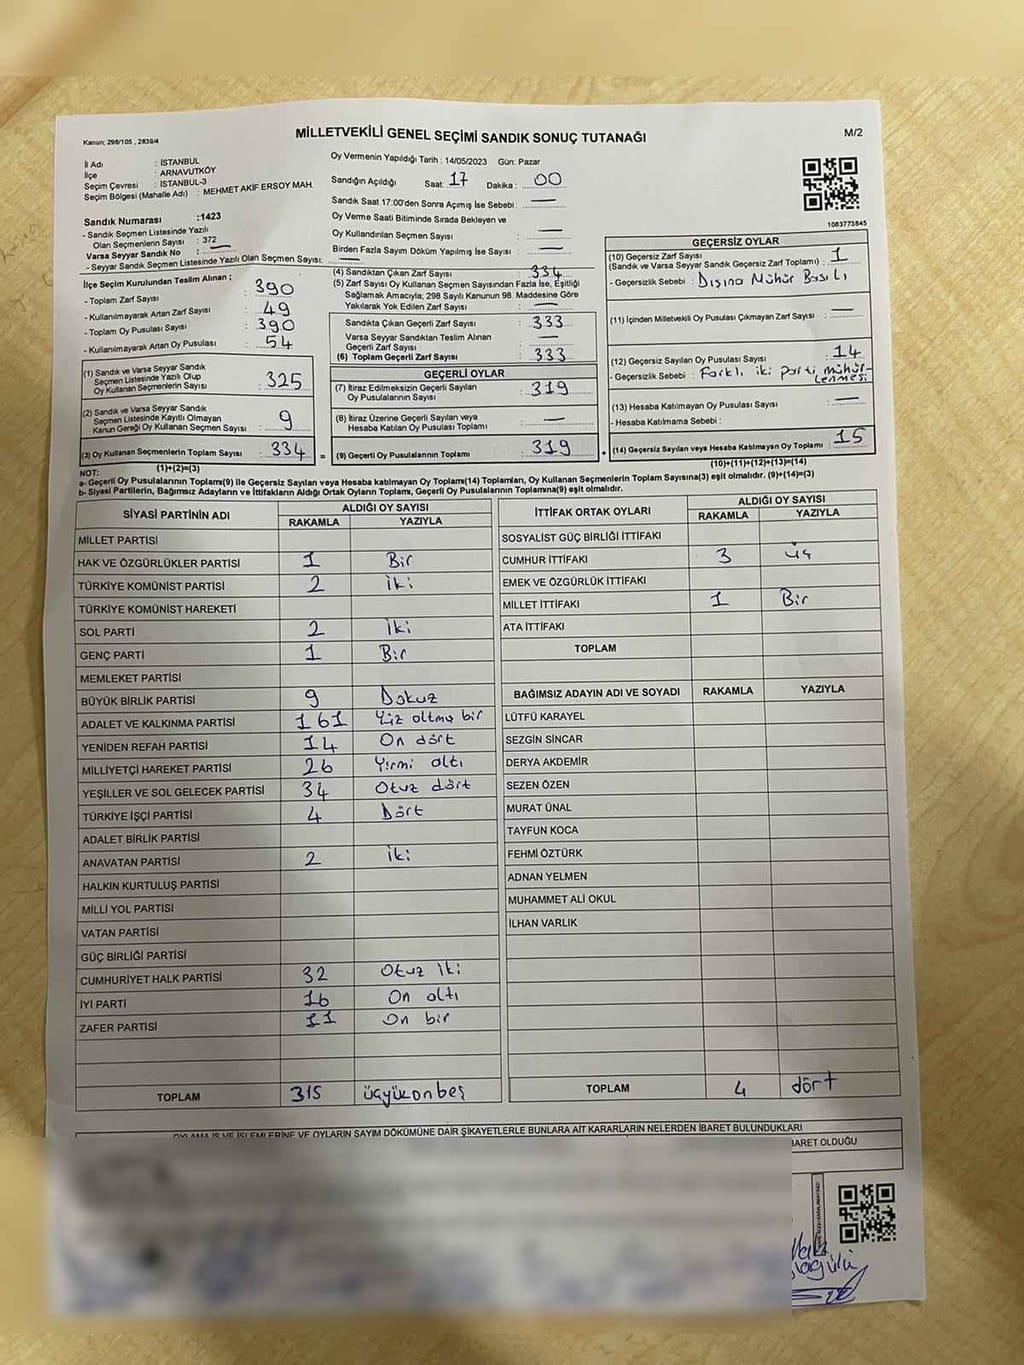 MİLLETVEKİLİ GENEL SEÇİMİ SANDIK SONUÇ TUTANAĞI
M/2
Kanun; 298/105 , 2839/4
İl Adı : İSTANBUL
İlçe : ARNAVUTKÖY
Seçim Çevresi : İSTANBUL-3
Seçim Bölgesi (Mahalle Adı) : MEHMET AKİF ERSOY MAH.
Sandık Numarası :1423
- Sandık Seçmen Listesinde Yazılı
Olan Seçmenlerin Sayısı : 372
Varsa Seyyar Sandık No : —
- Seyyar Sandık Seçmen Listesinde Yazılı Olan Seçmen Sayısı: —
Oy Vermenin Yapıldığı Tarih : 14/05/2023 Gün: Pazar
Sandığın Açıldığı Saat: 17 Dakika : 00
Sandık Saat 17:00'den Sonra Açımış İse Sebebi : —
Oy Verme Saati Bitiminde Sırada Bekleyen ve
Oy Kullandırılan Seçmen Sayısı : —
Birden Fazla Sayım Döküm Yapılmış İse Sayısı : —
1083773845
İlçe Seçim Kurulundan Teslim Alınan ;
- Toplam Zarf Sayısı : 390
- Kullanılmayarak Artan Zarf Sayısı : 49
- Toplam Oy Pusulası Sayısı : 390
- Kullanılmayarak Artan Oy Pusulası : 54
(1) Sandık ve Varsa Seyyar Sandık
Seçmen Listesinde Yazılı Olup
Oy Kullanan Seçmenlerin Sayısı : 325
(2) Sandık ve Varsa Seyyar Sandık
Seçmen Listesinde Kayıtlı Olmayan
Kanun Gereği Oy Kullanan Seçmen Sayısı : 9
(3) Oy Kullanan Seçmenlerin Toplam Sayısı : 334 =
(1)+(2)=(3)
(4) Sandıktan Çıkan Zarf Sayısı : 334
(5) Zarf Sayısı Oy Kullanan Seçmen Sayısından Fazla İse, Eşitliği
Sağlamak Amacıyla; 298 Sayılı Kanunun 98. Maddesine Göre
Yakılarak Yok Edilen Zarf Sayısı : —
Sandıkta Çıkan Geçerli Zarf Sayısı : 333
Varsa Seyyar Sandıktan Teslim Alınan
Geçerli Zarf Sayısı : —
(6) Toplam Geçerli Zarf Sayısı : 333
GEÇERLİ OYLAR
(7) İtiraz Edilmeksizin Geçerli Sayılan
Oy Pusulalarının Sayısı : 319
(8) İtiraz Üzerine Geçerli Sayılan veya
Hesaba Katılan Oy Pusulası Toplamı : —
(9) Geçerli Oy Pusulalarının Toplamı : 319 +
GEÇERSİZ OYLAR
(10) Geçersiz Zarf Sayısı : 1
(Sandık ve Varsa Seyyar Sandık Geçersiz Zarf Toplamı)
- Geçersizlik Sebebi : Dışına Mühür Basılı
(11) İçinden Milletvekili Oy Pusulası Çıkmayan Zarf Sayısı : —
(12) Geçersiz Sayılan Oy Pusulası Sayısı : 14
- Geçersizlik Sebebi : Farklı iki parti mühür-
lenmesi
(13) Hesaba Katılmayan Oy Pusulası Sayısı : —
- Hesaba Katılmama Sebebi :
(14) Geçersiz Sayılan veya Hesaba Katılmayan Oy Toplamı : 15
(10)+(11)+(12)+(13)=(14)
NOT:
a- Geçerli Oy Pusulalarının Toplamı(9) ile Geçersiz Sayılan veya Hesaba katılmayan Oy Toplam(14) Toplamları, Oy Kullanan Seçmenlerin Toplam Sayısına(3) eşit olmalıdır. (9)+(14)=(3)
b- Siyasi Partilerin, Bağımsız Adayların ve İttifakların Aldığı Ortak Oyların Toplamı, Geçerli Oy Pusulalarının Toplamına(9) eşit olmalıdır.
SİYASİ PARTİNİN ADI ALDIĞI OY SAYISI
RAKAMLA YAZIYLA
MİLLET PARTİSİ
HAK VE ÖZGÜRLÜKLER PARTİSİ 1 Bir
TÜRKİYE KOMÜNİST PARTİSİ 2 iki
TÜRKİYE KOMÜNİST HAREKETİ
SOL PARTİ 2 iki
GENÇ PARTİ 1 Bir
MEMLEKET PARTİSİ
BÜYÜK BİRLİK PARTİSİ 9 Dokuz
ADALET VE KALKINMA PARTİSİ 161 Yüz altmış bir
YENİDEN REFAH PARTİSİ 14 On dört
MİLLİYETÇİ HAREKET PARTİSİ 26 Yirmi altı
YEŞİLLER VE SOL GELECEK PARTİSİ 34 Otuz dört
TÜRKİYE İŞÇİ PARTİSİ 4 Dört
ADALET BİRLİK PARTİSİ
ANAVATAN PARTİSİ 2 iki
HALKIN KURTULUŞ PARTİSİ
MİLLİ YOL PARTİSİ
VATAN PARTİSİ
GÜÇ BİRLİĞİ PARTİSİ
CUMHURİYET HALK PARTİSİ 32 Otuz iki
İYİ PARTİ 16 On altı
ZAFER PARTİSİ 11 On bir
TOPLAM 315 üçyüzonbeş
İTTİFAK ORTAK OYLARI ALDIĞI OY SAYISI
RAKAMLA YAZIYLA
SOSYALİST GÜÇ BİRLİĞİ İTTİFAKI
CUMHUR İTTİFAKI 3 üç
EMEK VE ÖZGÜRLÜK İTTİFAKI
MİLLET İTTİFAKI 1 Bir
ATA İTTİFAKI
TOPLAM
BAĞIMSIZ ADAYIN ADI VE SOYADI RAKAMLA YAZIYLA
LÜTFÜ KARAYEL
SEZGİN SİNCAR
DERYA AKDEMİR
SEZEN ÖZEN
MURAT ÜNAL
TAYFUN KOCA
FEHMİ ÖZTÜRK
ADNAN YELMEN
MUHAMMET ALİ OKUL
İLHAN VARLIK
TOPLAM 4 dört
OYLAMA İŞ VE İŞLEMLERİNE VE OYLARIN SAYIM DÖKÜMÜNE DAİR ŞİKAYETLERLE BUNLARA AİT KARARLARIN NELERDEN İBARET BULUNDUKLARI
BARET OLDUĞU